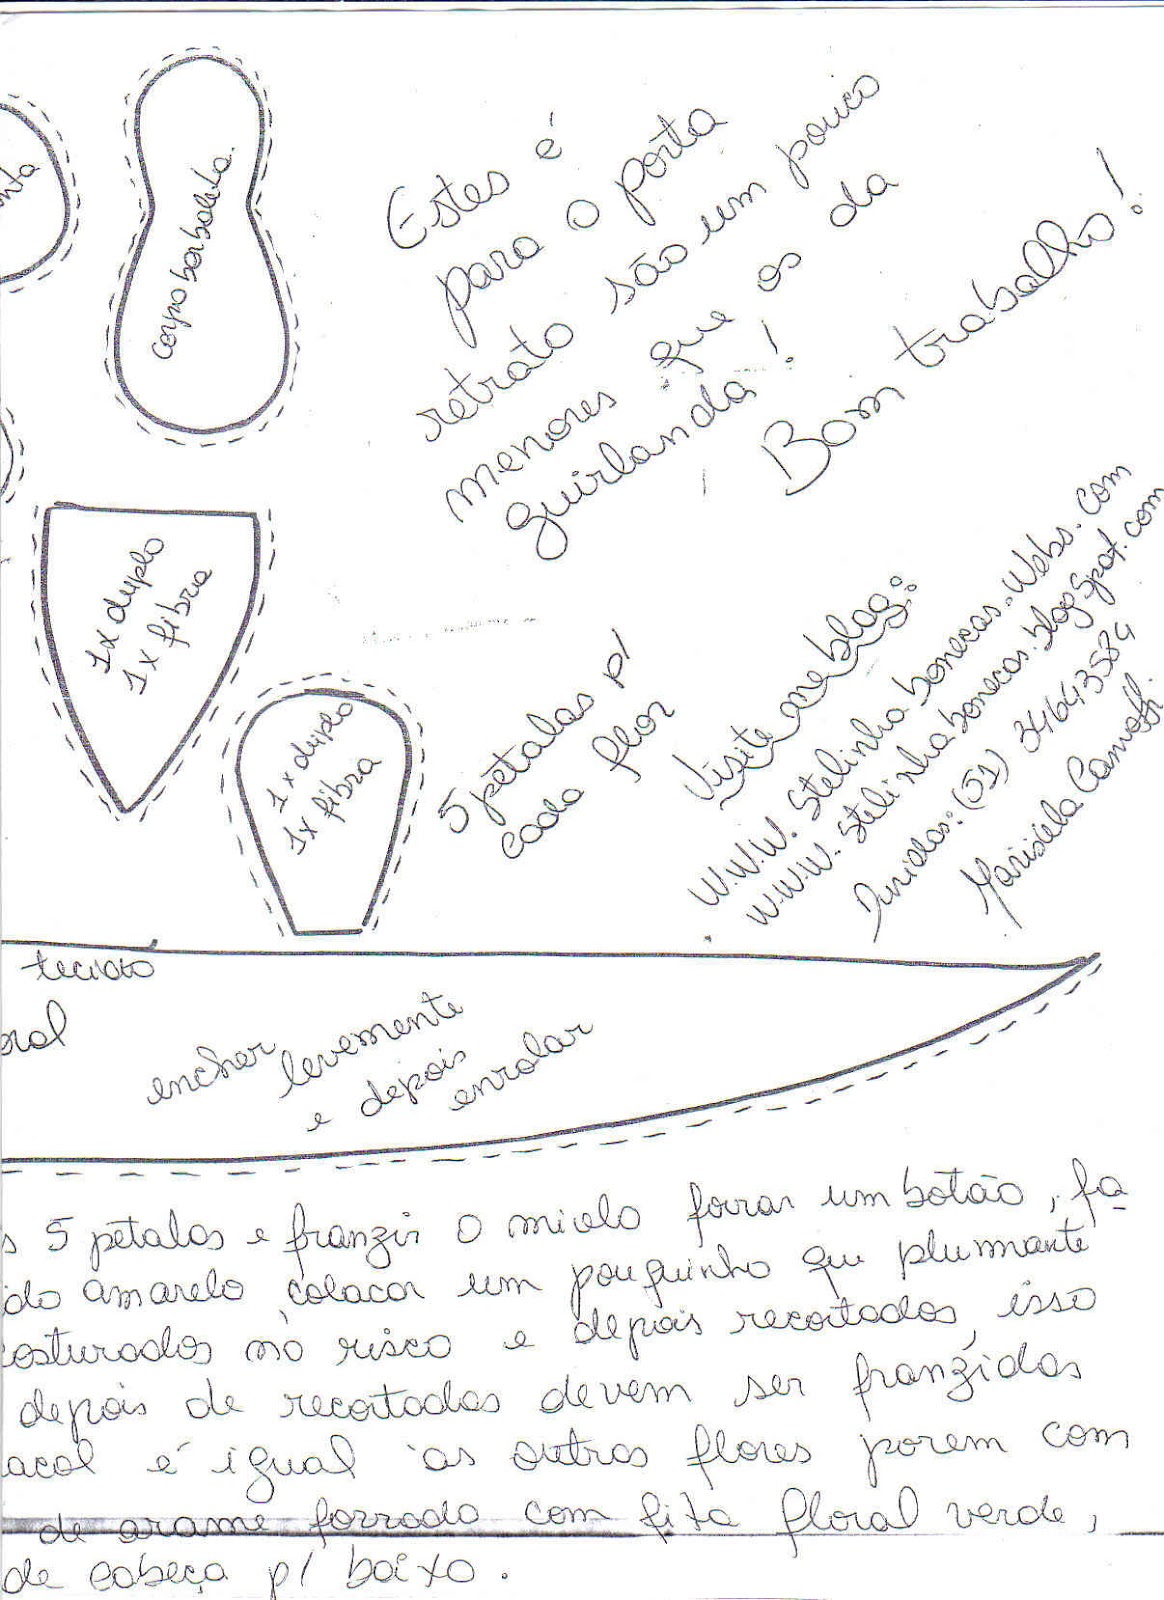 corpo borboleta.
Estes é
para o porta
retrato são um pouco
menores que os da
guirlanda!
Bom trabalho!
1x duplo
1x fibra
1x duplo
1x fibra
5 petalas p/
cada flor
Visite meu blog:
W.W.W. Stelinha bonecas. Webs. com
W.W.W. Stelinha bonecas. blog Spot. com
Duvidas: (51) 34643584
tecido
encher levemente
e depois
enrolar
5 petalas e franzir o miolo forrar um botão, fa
do amarelo colocar um pouquinho que plumante
costurados no risco e depois recortados, isso
depois de recortadas devem ser franzidas
acol é igual as outras flores porem com
de arame forrado com fita floral verde,
de cabeça p/ baixo.